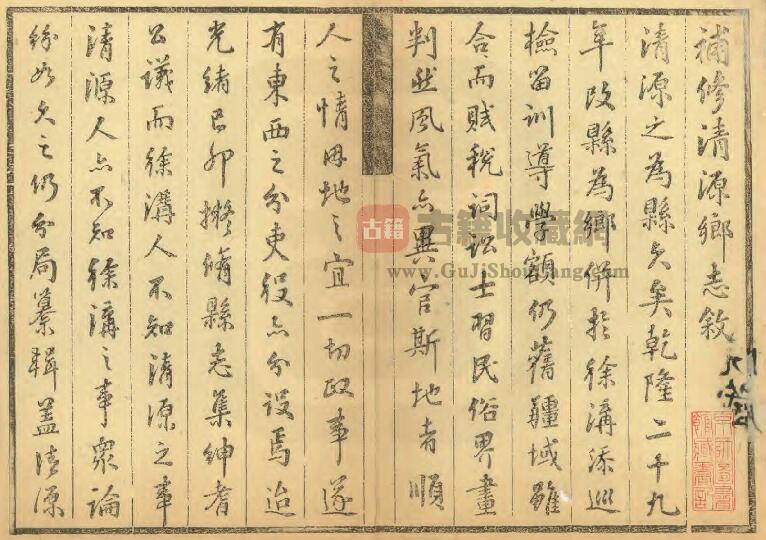 補修清源鄉志敘
清源之為縣久矣乾隆二十九
年改縣為鄉併於徐溝添巡
檢留訓導學額仍舊疆域雖
合而賦稅詞訟士習民俗界畫
判然風氣亦異官斯地者順
人之情因地之宜一切政事遂
有東西之分吏役亦分設焉迨
光緒己卯擬脩縣志集紳耆
公議而徐溝人不知清源之事
清源人亦不知徐溝之事眾論
紛如久之仍分局纂輯蓋清源
古籍 古籍收藏網
www.GuJiShouCang.com